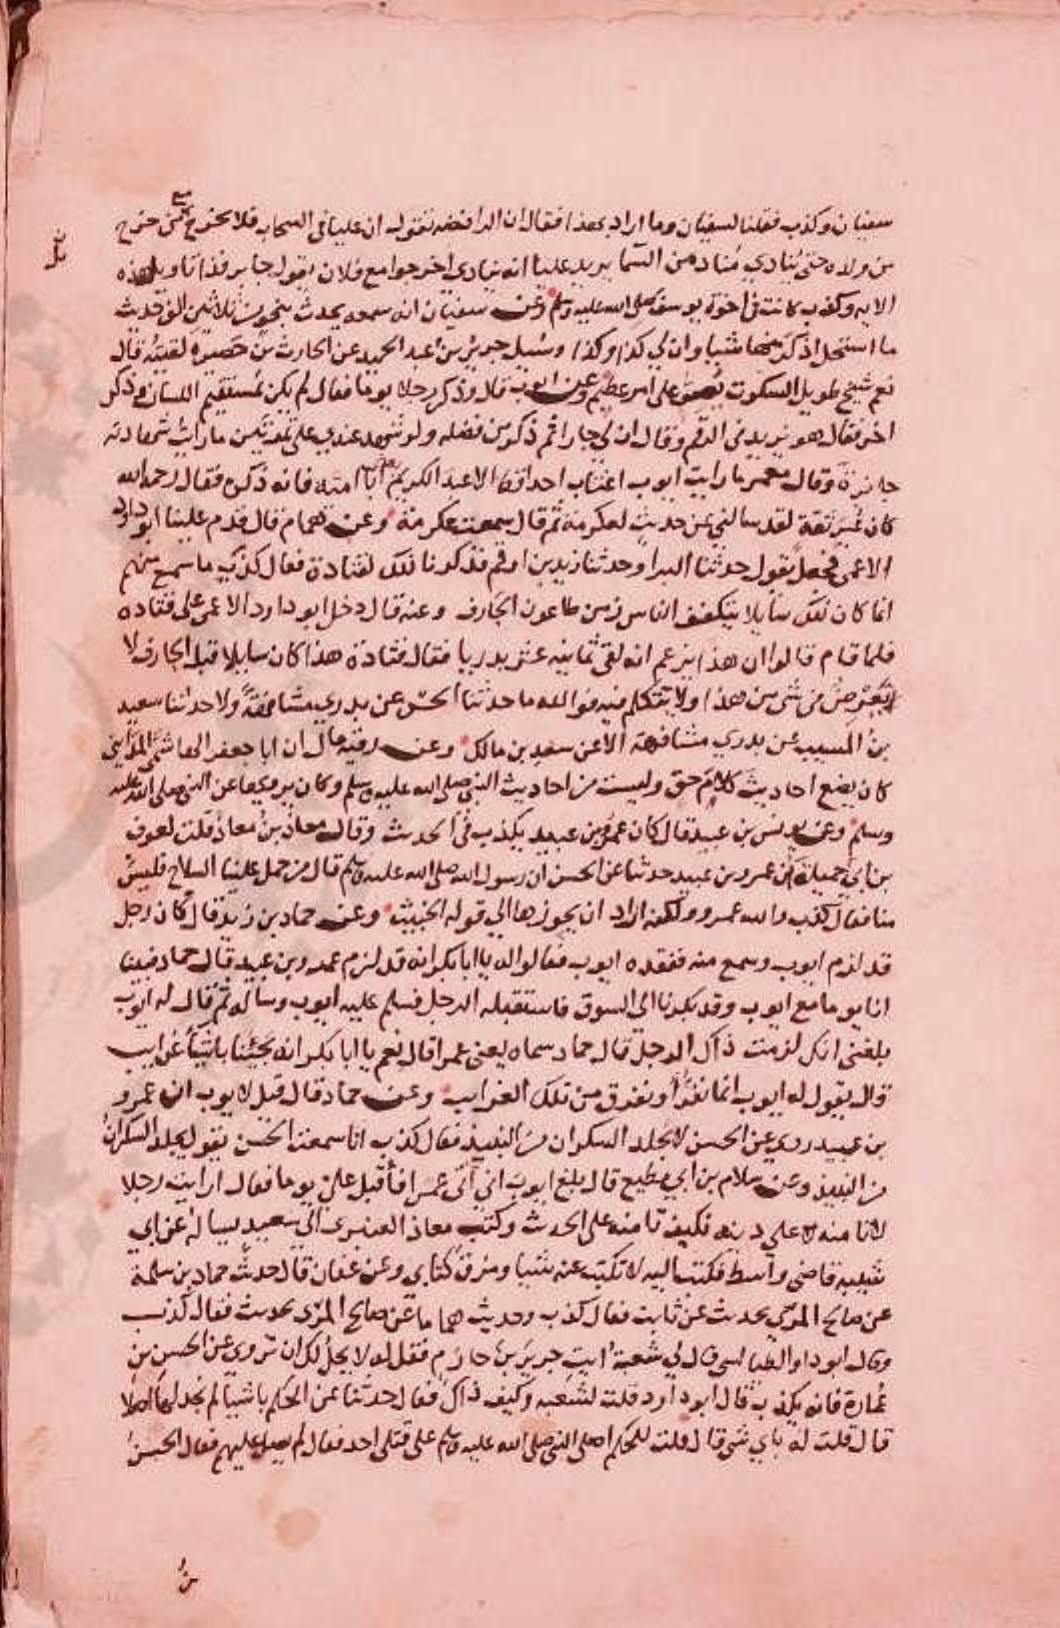 سفيان وكذب فقلنا لسفيان وما اراد بهذا فقال ان الرافضه تقول ان عليا في السحاب فلا نخرج مع من خرج
من ولده حتى ينادي مناد من السما يريد عليا انه ينادي اخرجوا مع فلان يقول جابر فذا تاويل هذه
الايه وكذب كانت في اخوة يوسف صلى الله عليه وسلم وعن سفيان انه سمعه يحدث بنحو من ثلاثين الف حديث
ما استحل اذكر منها شيا وان لي كذا وكذا وسيل جرير بن عبد الحميد عن الحارث بن حصيرة لقيته قال
نعم شيخ طويل السكوت يصر على امر عظيم وعن ايوب قال وذكر رجلا يوما فقال لم يكن بمستقيم اللسان وذكر
اخر فقال هو يزيد في الرقم وقال ان لي جارا ثم ذكر من فضله ولو شهد عندي على تمرتين ما رايت شهادته
جايزة وقال معمر ما رايت ايوب اغتاب احدا قط الا عبد الكريم ابا امية فانه ذكره فقال رحمه الله
كان غير ثقة لقد سالني عن حديث لعكرمة ثم قال سمعت عكرمة وعن همام قال قدم علينا ابو داود
الاعمى فجعل يقول حدثنا البرا وحدثنا زيد بن ارقم فذكرنا ذلك لقتادة فقال كذب ما سمع منهم
انما كان ذلك سايلا يتكفف الناس زمن طاعون الجارف وعنه قال دخل ابو داود الاعمى على قتاده
فلما قام قالوا ان هذا يزعم انه لقى ثمانيه عشر بدريا فقال قتادة هذا كان سايلا قبل الجارف لا
يعرض في شى من هذا ولا يتكلم فيه فوالله ما حدثنا الحسن عن بدري مشافهة ولا حدثنا سعيد
بن المسيب عن بدري مشافهة الا عن سعد بن مالك وعن رقبه قال ان ابا جعفر الهاشمي المدايني
كان يضع احاديث كلام حق وليست من احاديث النبي صلى الله عليه وسلم وكان يرويها عن النبي صلى الله عليه
وسلم وعن يونس بن عبيد قال كان عمرو بن عبيد يكذب في الحديث وقال معاذ بن معاذ قلت لعوف
بن ابي جميلة ان عمرو بن عبيد حدثنا عن الحسن ان رسول الله صلى الله عليه وسلم قال من حمل علينا السلاح فليس
منا فقال كذب والله عمرو ولكنه اراد ان يحوزها الى قوله الخبيث وعن حماد بن زيد قال كان رجل
قد لزم ايوب وسمع منه ففقده ايوب فقالوا له يا ابا بكر انه قد لزم عمرو بن عبيد قال حماد فبينا
انا يوما مع ايوب وقد بكرنا الى السوق فاستقبله الرجل فسلم عليه ايوب وساله ثم قال له ايوب
بلغني انك لزمت ذاك الرجل قال حماد سماه يعني عمرا قال نعم يا ابا بكر انه يجيئنا باشيا غرايب
قال يقول له ايوب انما نفر او نفرق من تلك الغرايب وعن حماد قال قيل لايوب ان عمرو
بن عبيد روي عن الحسن لا يجلد السكران من النبيذ فقال كذب انا سمعت الحسن يقول يجلد السكران
من النبيذ وعن سلام بن ابي مطيع قال بلغ ايوب اني آتي عمرا فاقبل علي يوما فقال ارايت رجلا
لا تامنه على دينه فكيف تامنه على الحديث وكتب معاذ العنبري الى سعيد يساله عن ابي
شيبه قاضي واسط فكتب اليه لا تكتب عنه شيا ومزق كتابي وعن عفان قال حدثت حماد بن سلمة
عن صالح المري بحديث عن ثابت فقال كذب وحديث هماما عن صالح المري بحديث فقال كذب
وقال ابو داود الطيالسي قال لي شعبة ايت جرير بن حازم فقل له لا يحل لك ان تروي عن الحسن بن
عمارة فانه يكذب قال ابو داود قلت لشعبه وكيف ذاك فقال حدثنا عن الحكم باشيا لم نجد لها اصلا
قال قلت له باي شى قال قلت للحكم اصلى النبي صلى الله عليه وسلم على قتلى احد فقال لم يصل عليهم فقال الحسن
بن